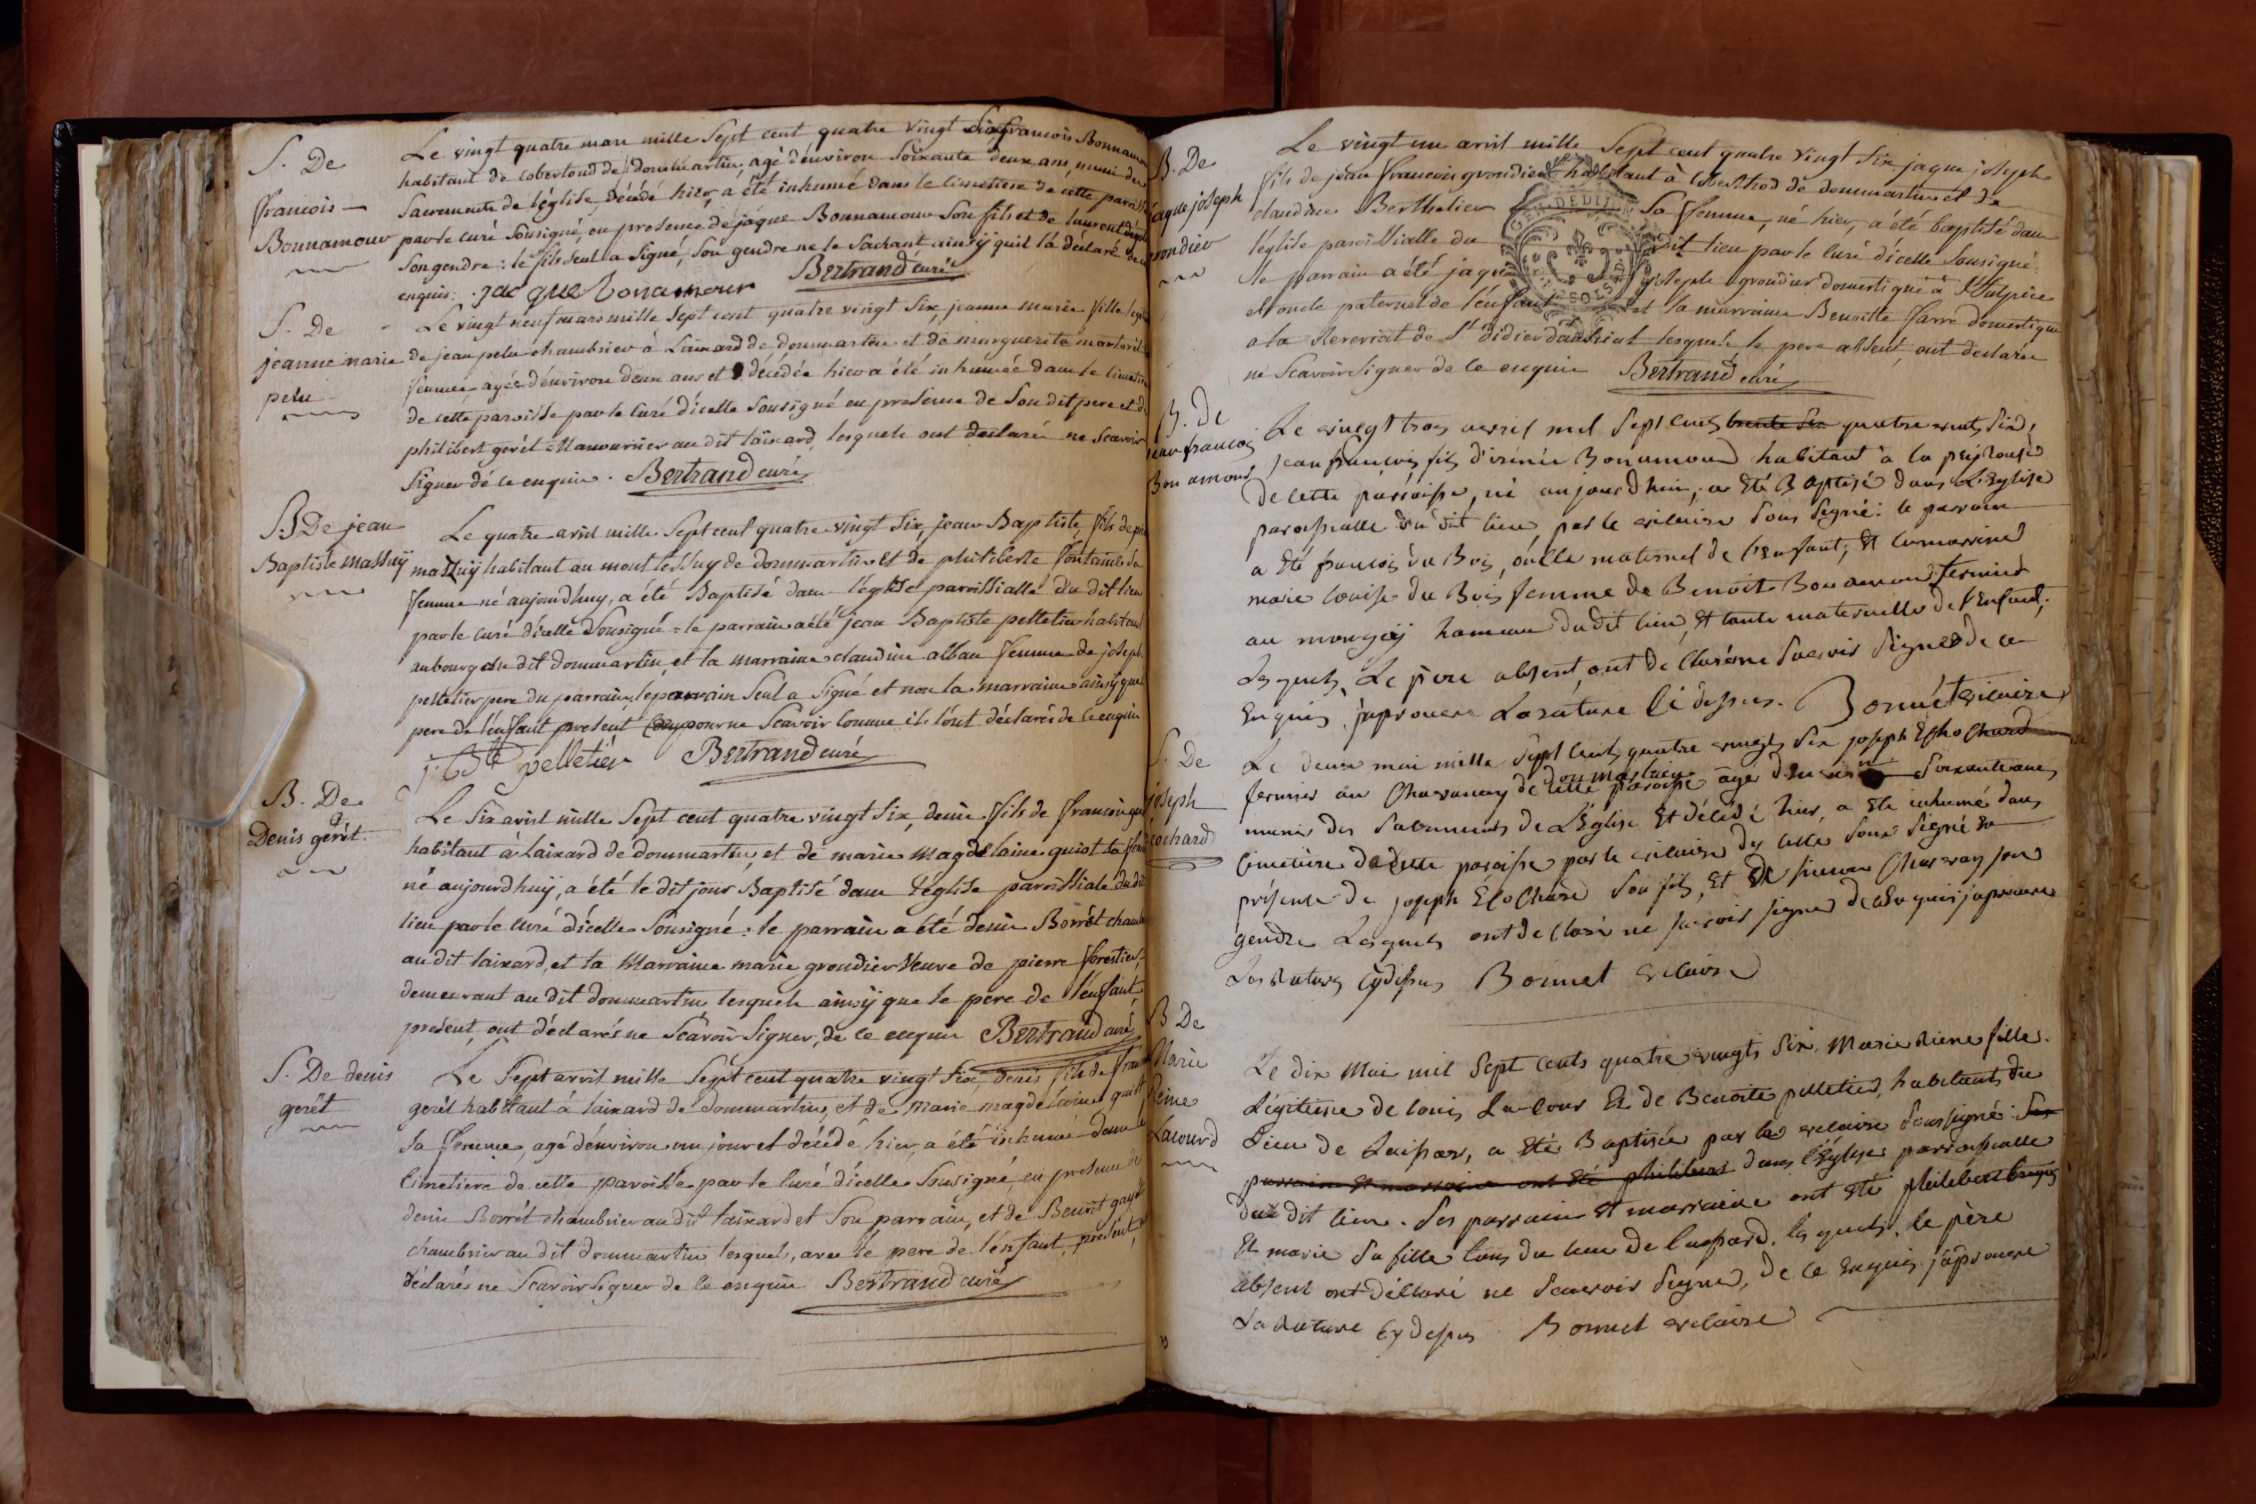 S. De
françois
Bonnamour
Le vingt quatre mars mille Sept cent quatre vingt Six françois Bonnamour
habitant de Cobertoud de dommartin, agé d'environ Soixante deux ans, muni des
Sacrements de l'église, décédé hier, a été inhumé dans le cimetiere de cette paroisse
par le curé Sousigné, en presence de jaque Bonnamour Son fils et de laurent
Son gendre : le fils seul a Signé, Son gendre ne le Sachant ainsÿ quil l'a déclaré de ce
enquis. jacque bonamour Bertrand curé
S. De
jeanne marie
pelu
Le vingt neuf mars mille Sept cent quatre vingt Six, jeanne marie fille
de jean pelu chambrier à Laixard de dommartin et de marguerite
femme, agée d'environ deux ans et décédée hier a été inhumée dans le cimetiere
de cette paroisse par le Curé d'icelle Sousigné en presence de Son dit pere et de
philibert gerêt Manouvrier au dit laixard, lesquels ont declaré ne Scavoir
Signer de ce enquis. Bertrand curé
B De jean
Baptiste massuÿ
Le quatre avril mille Sept cent quatre vingt Six, jean Baptiste, fils de
massuÿ habitant au mont de dommartin et de philiberte
femme né aujourdhuy, a été Baptisé dans l'église paroissialle du dit lieu
par le curé d'icelle Sousigné : le parrain a été jean Baptiste pelletier habitant
au bourg du dit dommartin, et la marraine claudine alban femme de joseph
pelletier pere du parrain, le parrain Seul a Signé et non la marraine ainsÿ que
pere de l'enfant present pour ne Scavoir Comme ils l'ont déclarés de ce enquis
j. Bte pelletier Bertrand curé
B. De
Denis gerêt
Le Six avril mille Sept cent quatre vingt Six, denis fils de francois
habitant à laixard de dommartin, et de marie magdelaine guiot sa femme
né aujourdhuÿ, a été le dit jour Baptisé dans l'église paroissiale du dit
lieu par le curé d'icelle Sousigné : le parrain a été denis Borrêt
au dit laixard, et la Marraine marie grondier Veuve de pierre forestier
demeurant au dit dommartin lesquels ainsÿ que le pere de l'enfant
présent, ont déclarés ne Scavoir Signer, de ce enquis Bertrand curé
S. De denis
gerêt
Le Sept avril mille Sept cent quatre vingt Six, denis fils de
gerêt habitant à laixard de dommartin, et de Marie magdelaine
Sa femme, agé d'environ un jour et décédé hier, a été inhumé dans le
Cimetiere de cette paroisse par le Curé d'icelle Sousigné, en presence de
denis Borrêt chambrier au dit laixard et Son parrain, et de Benoit
chambrier au dit dommartin lesquels, avec le pere de l'enfant, présent,
déclarés ne Scavoir Signer de ce enquis Bertrand curé
B. De
jaque joseph
grondier
Le vingt un avril mille Sept cent quatre vingt Six jaque joseph
fils de jean francois grondier habitant à Cobertod de dommartin et de
claudine Berthelier Sa femme, né hier, a été baptisé dans
l'église paroissialle du dit lieu par le Curé d'icelle Sousigné
le parrain a été jaque joseph grondier domestique à St Sulpice
et oncle paternel de l'enfant et la marraine Benoitte farre domestique
a la de St didier lesquels le pere absent, ont déclarés
ne Scavoir Signer de ce enquis Bertrand curé
B. de
jean françois
Bonamour
Le vingt trois avril mil Sept cents trente Six quatre vingt Six,
jean françois fils d'irénée Bonamour habitant à la peÿrouse
de cette parroisse, né aujourdhui, a été Baptisé dans L'Eglise
paroissialle du dit lieu par le vicaire Sous Signé : le parrain
a été francois du Bois, oncle maternel de l'enfant, et la marraine
marie louise du Bois femme de Benoit Bonamour fermier
au hameau du dit lieu, et tante maternelle de l'Enfant,
Lesquels, Le pere absent, ont declaré ne Scavoir Signer de ce
Enquis, j'aprouve La rature ci dessus. Bonnet vicaire
S. De
joseph
Ecochard
Le deux mai mille Sept Cents quatre vingt Six joseph Ecochard
fermier au Charvanay de cette paroisse dommartin agé d'environ Soixante ans
muni des Sacrements de L'Eglise Et décédé hier, a été inhumé dans
Cimetière de cette paroisse par le vicaire dicelle Sous Signé En
présence de joseph Ecochard Son fils, Et de Charvay Son
gendre Lesquels ont declaré ne Scavoir signer de ce Enquis j'aprouve
Les ratures cy dessus Bonnet vicaire
B De
Marie
Reine
Lacour
Le dix Mai mil Sept cents quatre vingts Six. Marie Reine fille
Légitime de louis Lacour Et de Benoite pelletier, habitants du
Lieu de, a été Baptisée par le vicaire Soussigné : Ses
parrain et marraine ont été philibert dans l'Eglise parroissialle
du dit lieu. Ses parrain Et marraine ont été philibert
Et marie Sa fille tous du lieu de. lesquels, le père
absent ont déclaré ne Scavoir Signer, de ce Enquis, j'aprouve
La rature cy dessus Bonnet vicaire